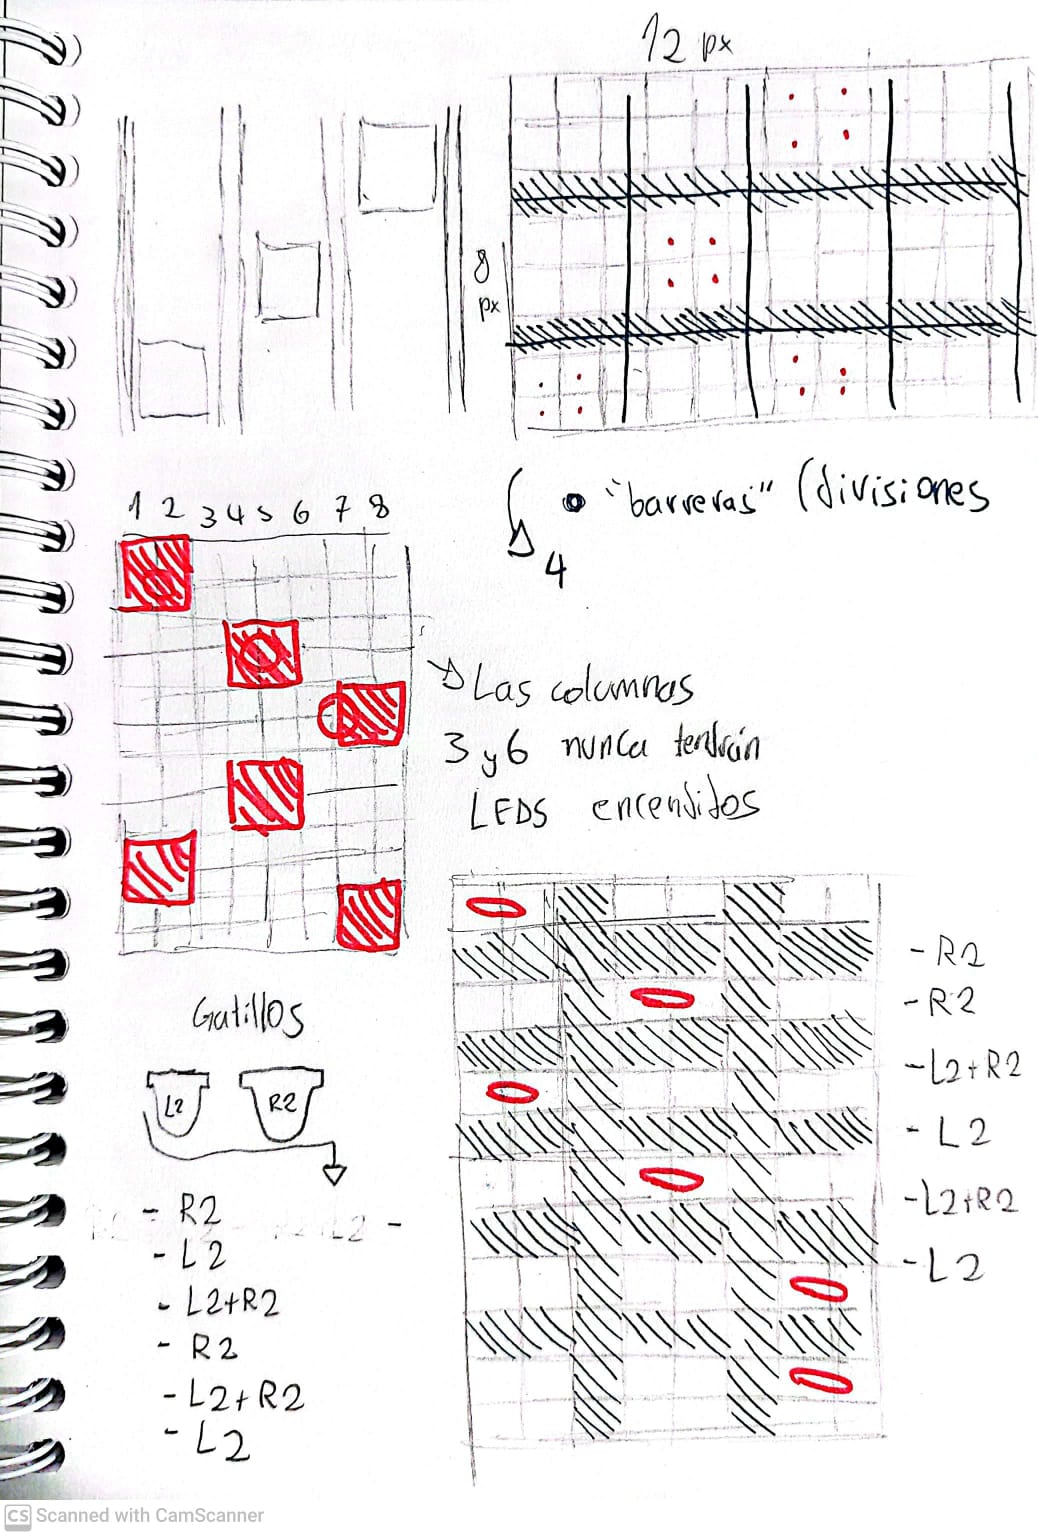 12 px
8
px
"barreras" (divisiones
4
1 2 3 4 5 6 7 8
Las columnas
3 y 6 nunca tendrán
LEDS encendidos
Gatillos
L2 R2
- R2
- L2
- L2+R2
- R2
- L2+R2
- L2
- R2
- R2
- L2+R2
- L2
- L2+R2
- L2
CS Scanned with CamScanner